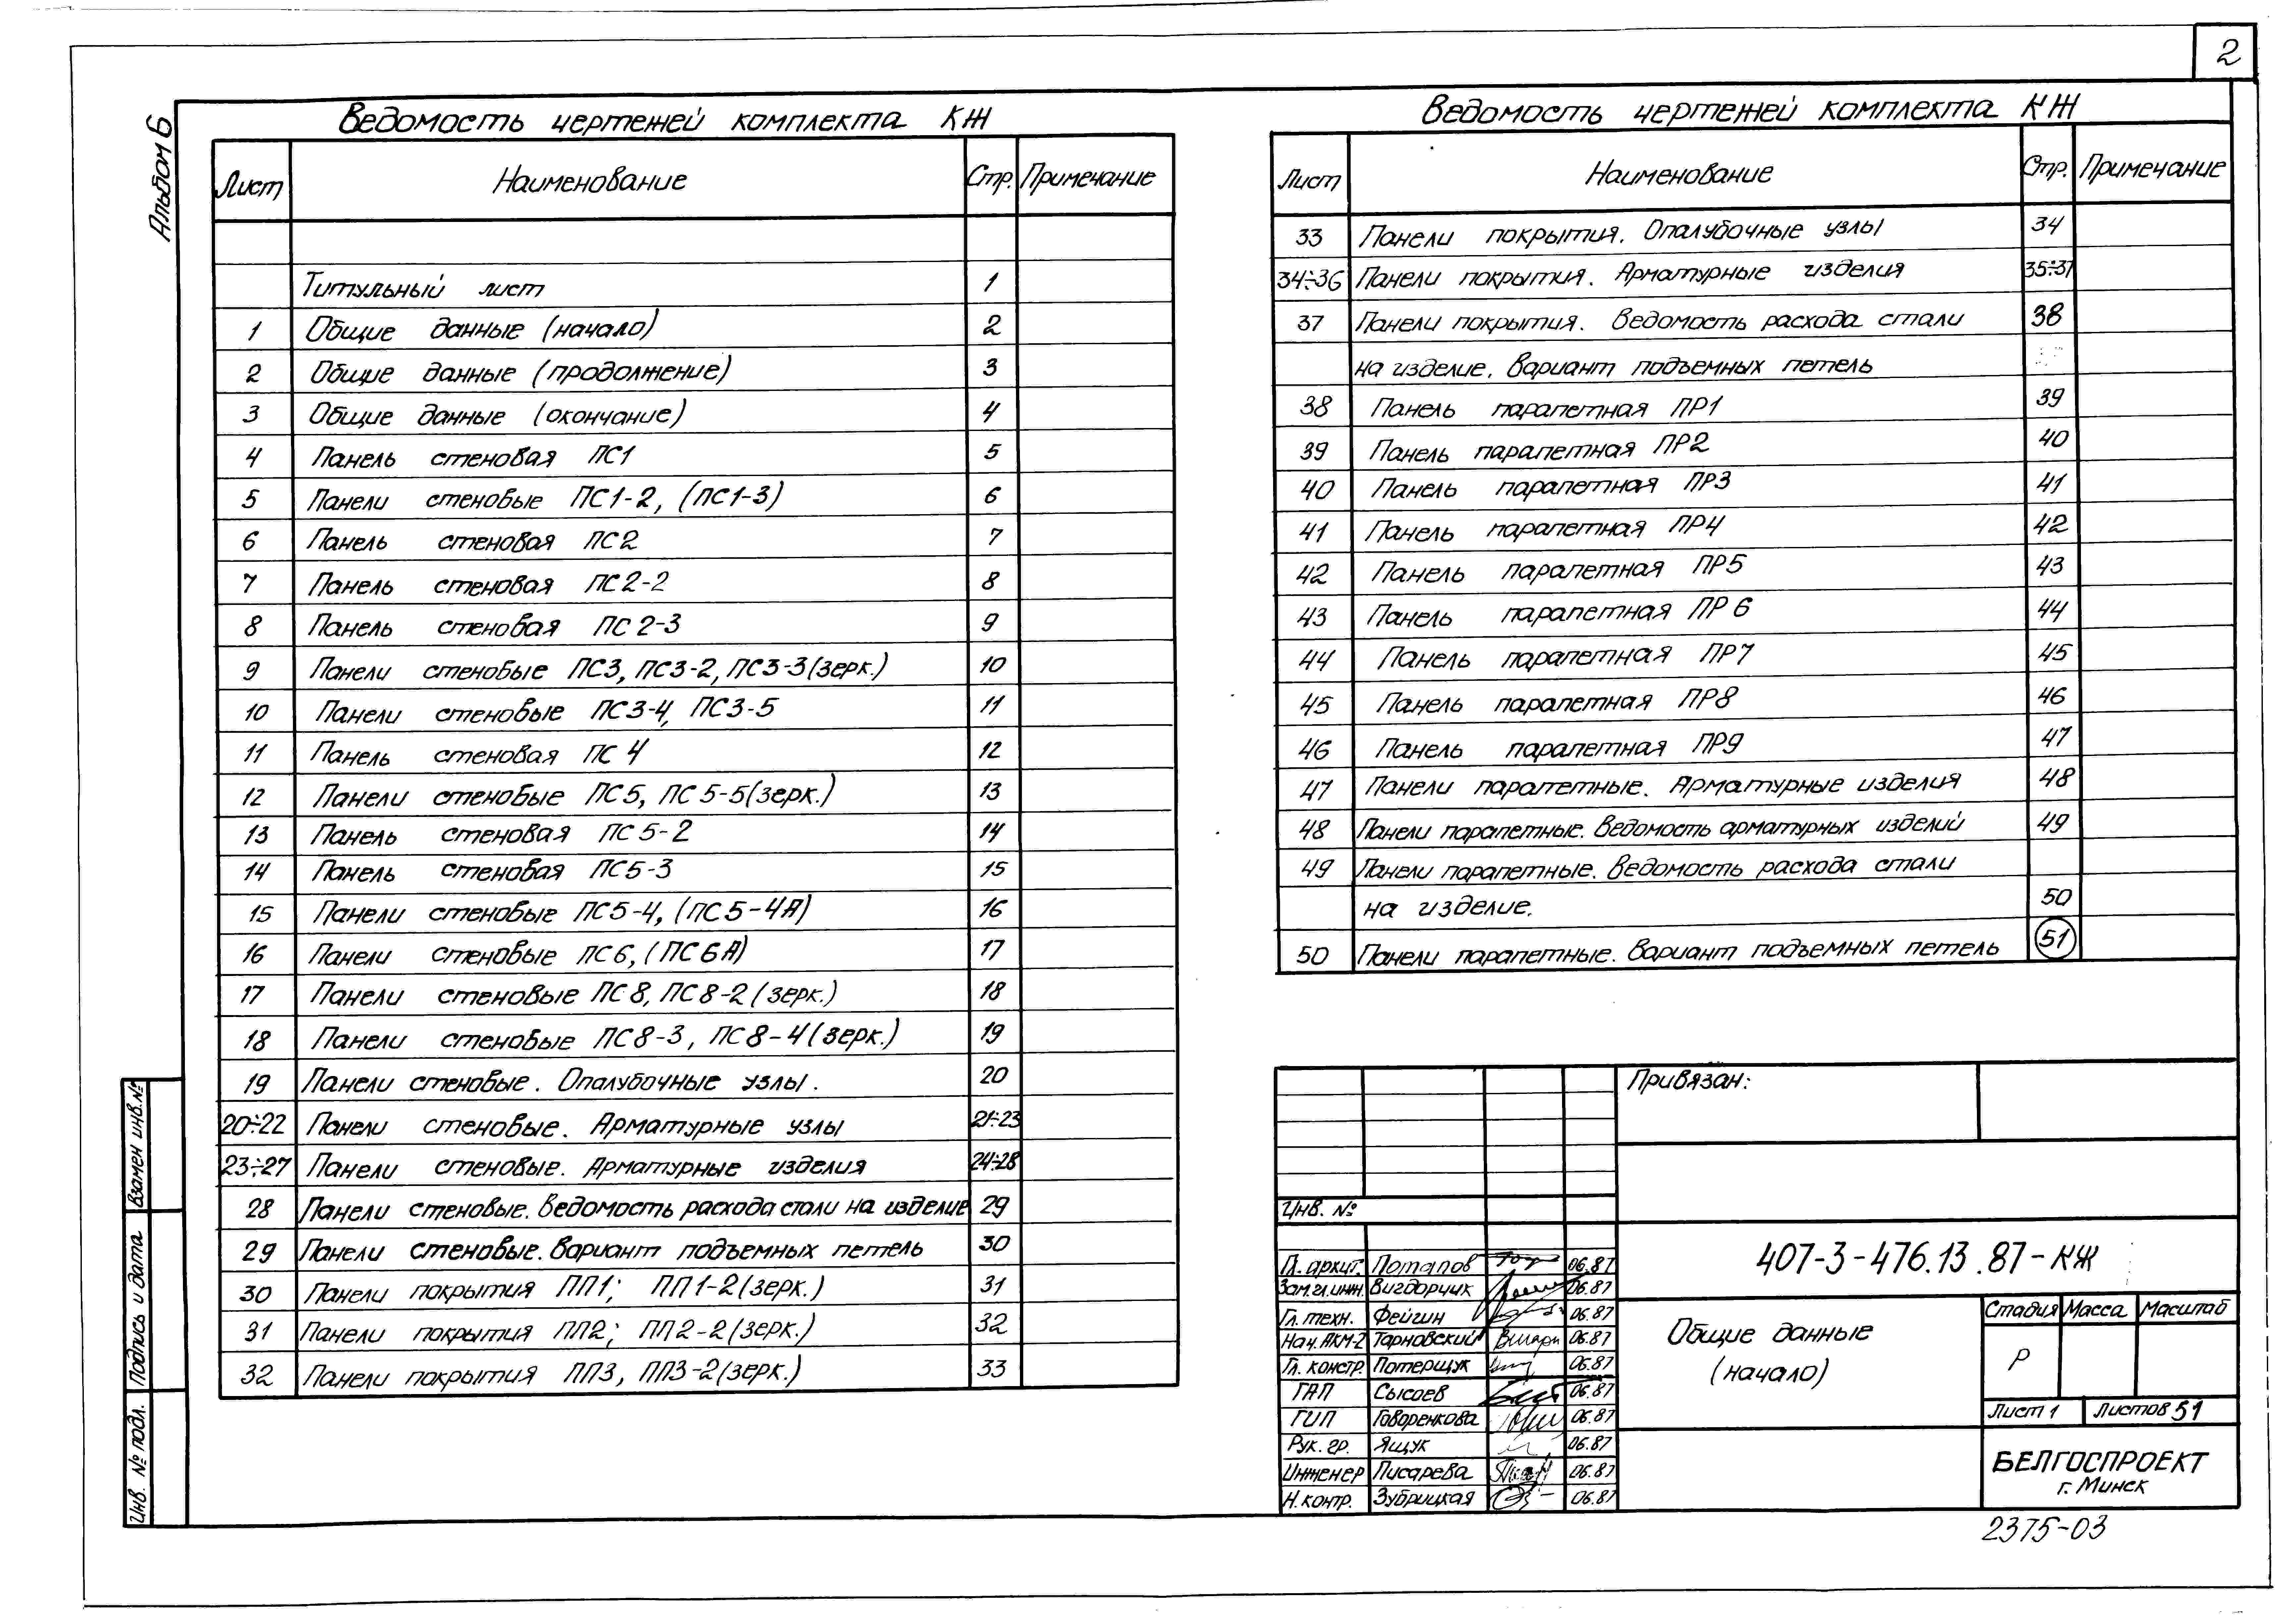 2
Альбом 6
Ведомость чертежей комплекта КЖ
Лист Наименование Стр. Примечание
Титульный лист 1
1 Общие данные (начало) 2
2 Общие данные (продолжение) 3
3 Общие данные (окончание) 4
4 Панель стеновая ПС1 5
5 Панели стеновые ПС1-2, (ПС1-3) 6
6 Панель стеновая ПС2 7
7 Панель стеновая ПС2-2 8
8 Панель стеновая ПС2-3 9
9 Панели стеновые ПС3, ПС3-2, ПС3-3(зерк.) 10
10 Панели стеновые ПС3-4, ПС3-5 11
11 Панель стеновая ПС 4 12
12 Панели стеновые ПС5, ПС5-5(зерк.) 13
13 Панель стеновая ПС5-2 14
14 Панель стеновая ПС5-3 15
15 Панели стеновые ПС5-4, (ПС5-4А) 16
16 Панели стеновые ПС6, (ПС6А) 17
17 Панели стеновые ПС8, ПС8-2(зерк.) 18
18 Панели стеновые ПС8-3, ПС8-4(зерк.) 19
19 Панели стеновые. Опалубочные узлы. 20
20÷22 Панели стеновые. Арматурные узлы 21÷23
23÷27 Панели стеновые. Арматурные изделия 24÷28
28 Панели стеновые. Ведомость расхода стали на изделие 29
29 Панели стеновые. Вариант подъемных петель 30
30 Панели покрытия ПП1; ПП1-2(зерк.) 31
31 Панели покрытия ПП2; ПП2-2(зерк.) 32
32 Панели покрытия ПП3, ПП3-2(зерк.) 33
Ведомость чертежей комплекта КЖ
Лист Наименование Стр. Примечание
33 Панели покрытия. Опалубочные узлы 34
34÷36 Панели покрытия. Арматурные изделия 35÷37
37 Панели покрытия. Ведомость расхода стали 38
на изделие. Вариант подъемных петель
38 Панель парапетная ПР1 39
39 Панель парапетная ПР2 40
40 Панель парапетная ПР3 41
41 Панель парапетная ПР4 42
42 Панель парапетная ПР5 43
43 Панель парапетная ПР6 44
44 Панель парапетная ПР7 45
45 Панель парапетная ПР8 46
46 Панель парапетная ПР9 47
47 Панели парапетные. Арматурные изделия 48
48 Панели парапетные. Ведомость арматурных изделий 49
49 Панели парапетные. Ведомость расхода стали
на изделие. 50
50 Панели парапетные. Вариант подъемных петель 51
Привязан:
Инв. №
Гл. архит. Потапов 06.87
Зам.гл.инж. Вигдорчик 06.87
Гл. техн. Фейгин 06.87
Нач.АКМ-2 Тарновский 06.87
Гл. констр. Потерщук 06.87
ГАП Сысоев 06.87
ГИП Говоренкова 06.87
Рук. гр. Ящук 06.87
Инженер Писарева 06.87
Н. контр. Зубрицкая 06.87
407-3-476.13.87-КЖ
Общие данные
(начало)
Стадия Масса Масштаб
Р
Лист 1 Листов 51
БЕЛГОСПРОЕКТ
г. Минск
2375-03
Взамен инв.№
Подпись и дата
Инв. № подл.